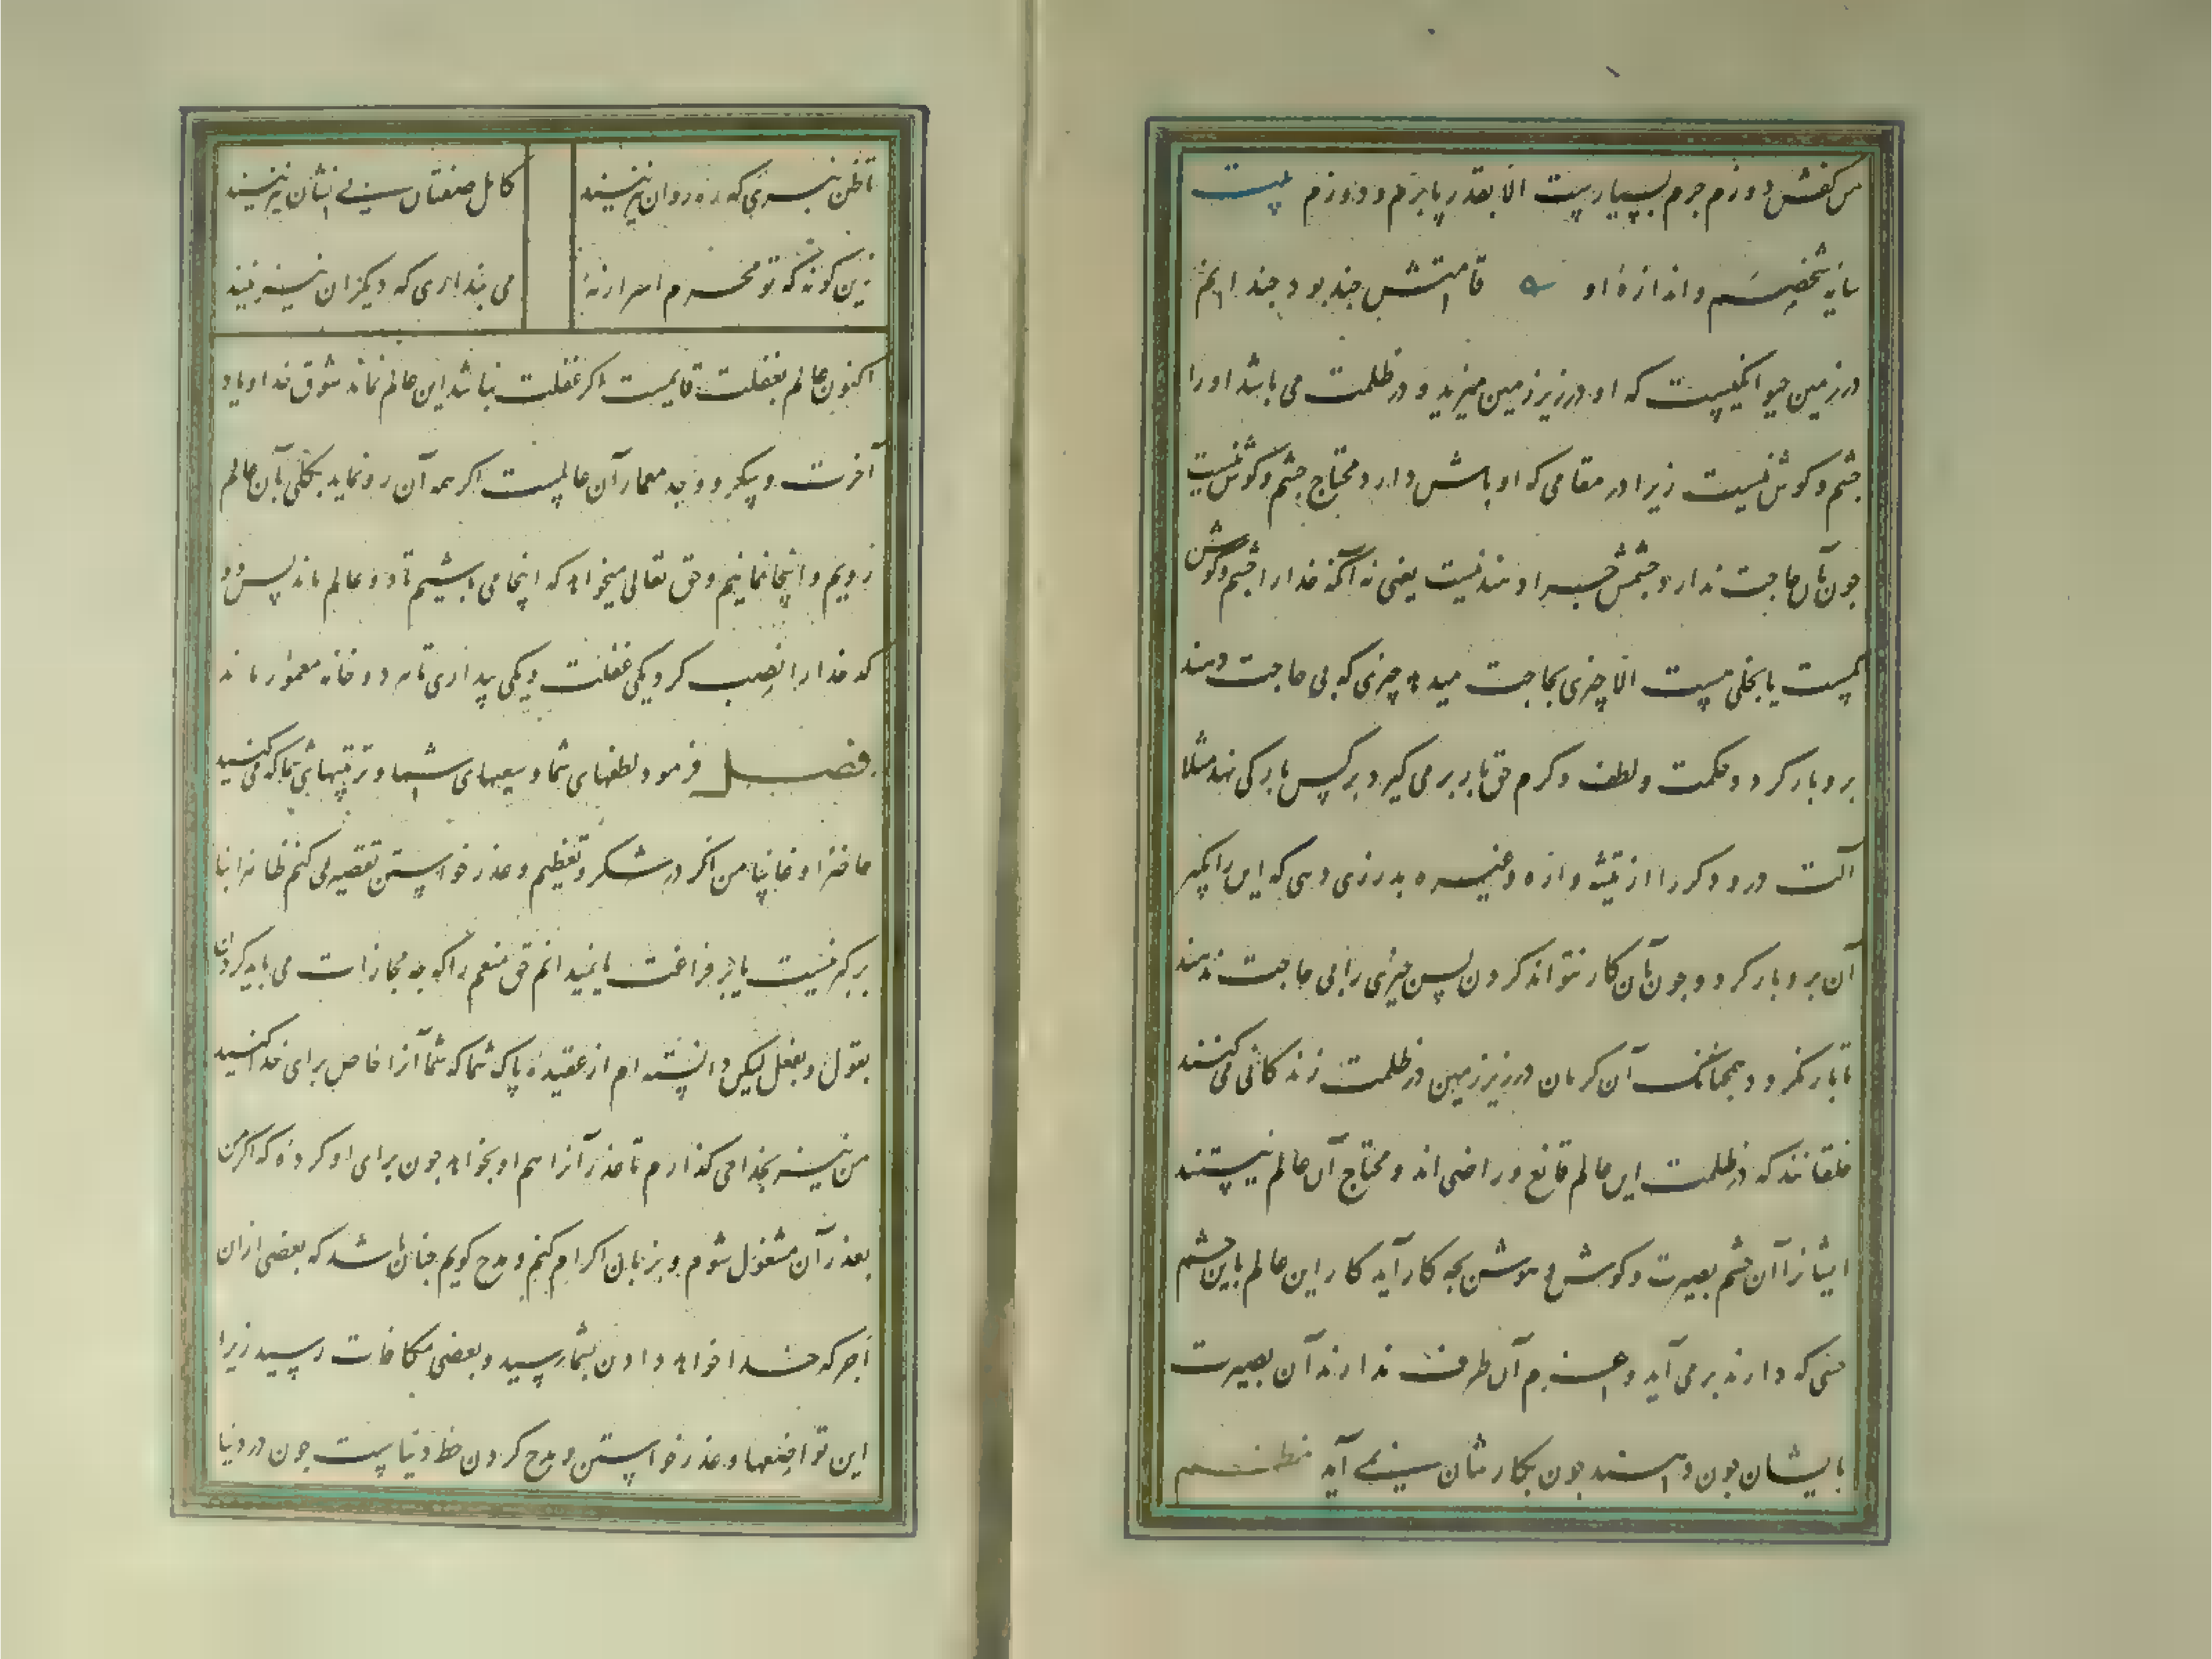 من کفش دوزم چرم بسیارست الا بقدر پا برم و دوزم بیت
سایه شخصم و اندازه او قامتش چند بود چندانم
در زمین حیوانکیست که او در زیر زمین میزید و در ظلمت می باشد او را
چشم و کوش نیست زیرا در مقامی که او باش دارد محتاج چشم و کوش نیست
چون بآن حاجت ندارد چشمش چرا دهند نیست یعنی نه آنکه خدا را چشم و کوش
کمیست یا بخلی هست الا چیزی بحاجت میدهد چیزی که بی حاجت دهند
برو بار کردد حکمت و لطف و کرم حق بار بر می کیرد بر کس بار کی نهد مثلا
آلت درودکر را از تیشه و اره و غیره بدرزی دهی که این را بکیر
آن برو بار کردد چون بآن کار نتواند کردن پس چیزی را بی حاجت ندهند
تا بار نکردد همچنانک آن کرمان در زیر زمین در ظلمت زندکانی می کنند
خلقانند که در ظلمت این عالم قانع و راضی اند و محتاج آن عالم نیستند
ایشانرا آن چشم بصیرت و کوش هوش بچه کار آید کار این عالم باین چشم
حسی که دارند بر می آید و عزم آن طرف ندارند آن بصیرت
بایشان چون دهند چون بکارشان نمی آید نظم
تا ظن نبری که ره روان نیز نیند کامل صفتان بی نشان نیز نیند
زین کونه که تو محرم اسرار نهٔ می پنداری که دیکران نیز نیند
اکنون عالم بغفلت قایمست اکر غفلت نباشد این عالم نماند شوق خدا و یاد
آخرت و سکر و وجد معمار آن عالمست اکر همه آن رو نماید بکلی بآن عالم
رویم و اینجا نمانیم و حق تعالی میخواهد که اینجا می باشیم تا دو عالم ماند پس دو
کدخدا را نصب کرد یکی غفلت و یکی بیداری تا هر دو خانه معمور ماند
فصل فرمود لطفهای شما و سعیهای شما و تربیتهای شما که می کنید
حاضرا و غایبا من اکر در شکر و تعظیم و عذر خواستن تقصیر می کنم ظاهرا بنا
بر کبر نیست یا بر فراغت یا نمیدانم حق منعم را که چه مجازات می باید کردن
بقول و بفعل لیکن دانسته ام از عقیدهٔ پاک شما که شما آنرا خاص برای خدا می کنید
من نیز بخدا می کذارم تا عذر آنرا هم او بخواهد چون برای او کردهٔ که اکر من
بعذر آن مشغول شوم و بزبان اکرام کنم و مدح کویم چنان باشد که بعضی از آن
اجر که خدا خواهد دادن بشما رسید و بعضی مکافات رسید زیرا
این تواضعها و عذر خواستن و مدح کردن حظ دنیاست چون در دنیا